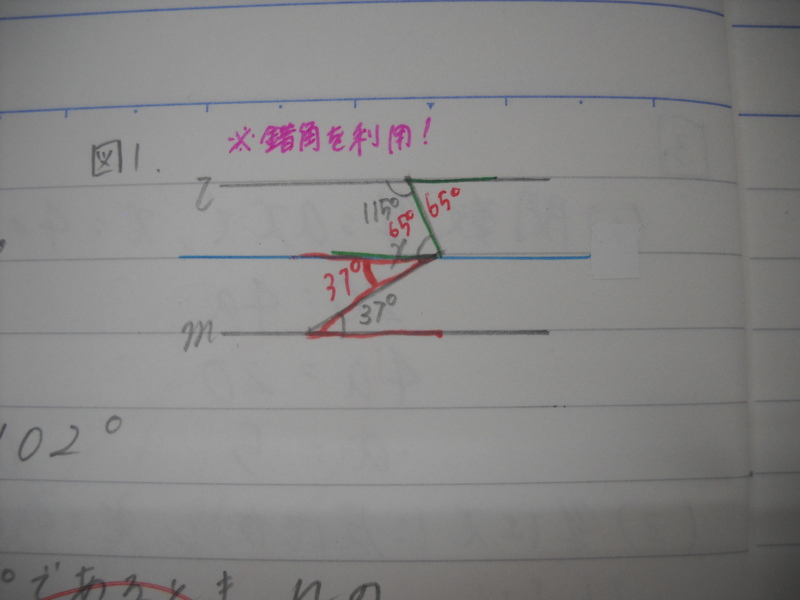 ※錯角を利用!
図1.
l
115° 65°
65°
x
37°
37°
m
102°
°であるとき、nの